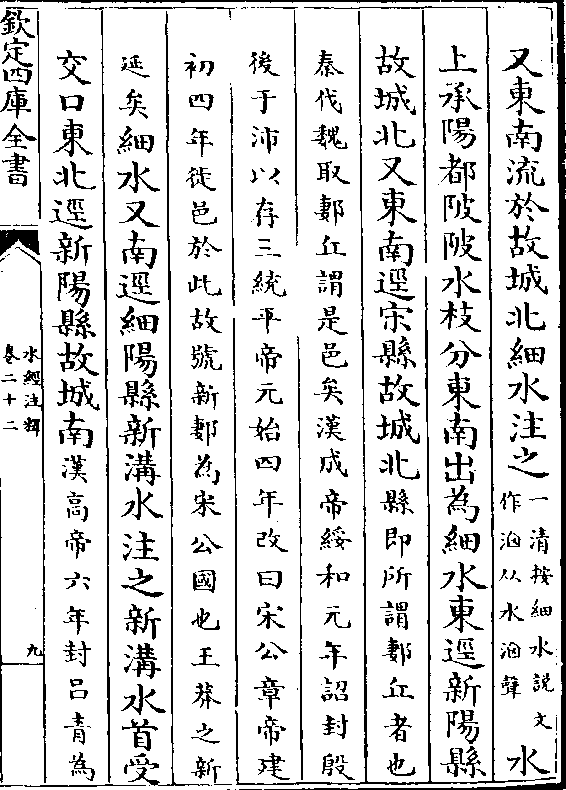 又東南流於故城北細水注之一清按細水說文作洇从水洇聲水
上承陽都陂陂水枝分東南出為細水東逕新陽縣
故城北又東南逕宋縣故城北縣即所謂郪丘者也
秦伐魏取郪丘謂是邑矣漢成帝綏和元年詔封殷
後于沛以存三統平帝元始四年改曰宋公章帝建
初四年徙邑於此故號新郪為宋公國也王莽之新
延矣細水又南逕細陽縣新溝水注之新溝水首受
交口東北逕新陽縣故城南漢高帝六年封呂青為
水經注釋
卷二十二
九
欽定四庫全書